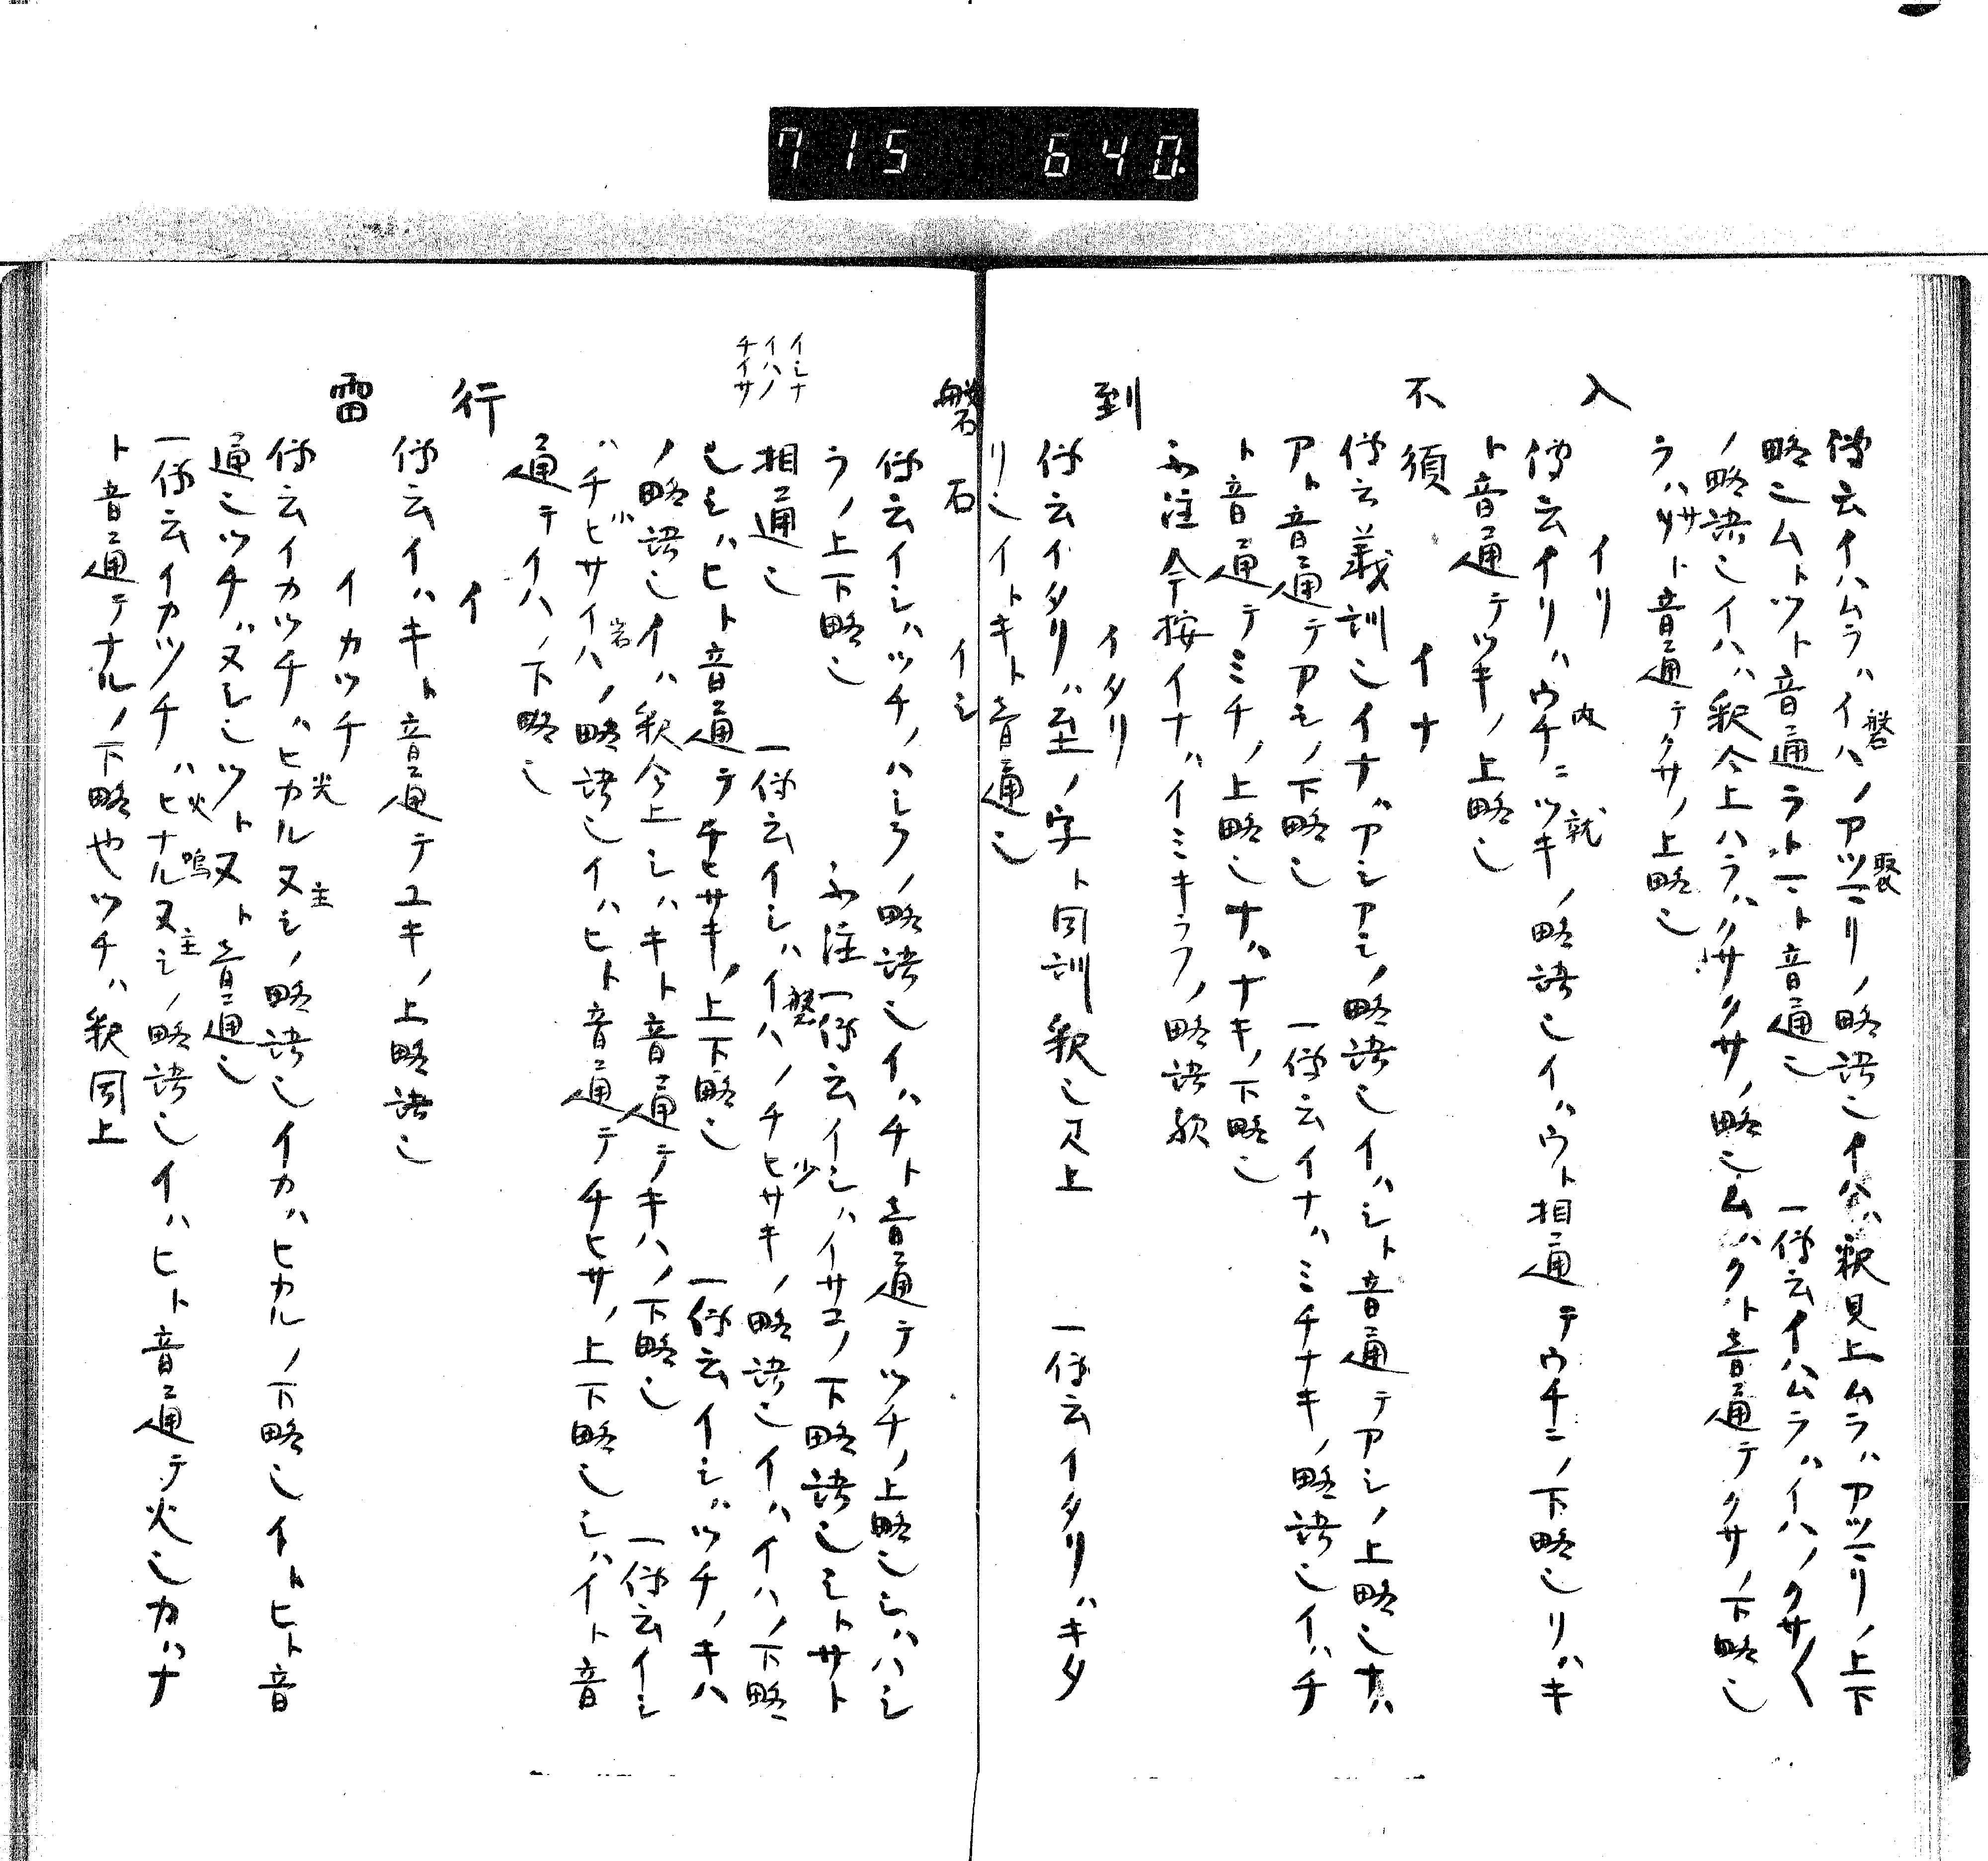 715 640
傳云イハムラハイハノアツマリノ略語也イハハ釈見上ムラハアツマリノ上下
磐 聚
略也ムトツト音通ラトマト音通也 一傳云イハムラハイハノクサ〱
ノ略語也イハハ釈今上ハラハクサクサノ略也ムハクト音通テクサノ下略也
ラハサト音通テクサノ上略也
入 イリ
傳云イリハウチニツキノ略語也イハウト相通テウチニノ下略也リハキ
内 就
ト音通テツキノ上略也
不須 イナ
傳云義訓也イナハアシアシノ略語也イハシト音通テアシノ上略也ナハ
アト音通テアシノ下略也 一傳云イナハミチナキノ略語也イハチ
ト音通テミチノ上略也ナハナキノ下略也
不注今按イナハイミキラフノ略語歟
到 イタリ
傳云イタリハ至ノ字ト同訓釈也又上 一傳云イタリハキタ
リ也イトキト音通也
磐石 イシ
傳云イシハツチノハシラノ略語也イハチト音通テツチノ上略也シハハシ
ラノ上下略也 不注一傳云イシハイサゴノ下略語也シトサト
相通也 一傳云イシハイハノチヒサキノ略語也イハイハノ下略
磐 少
イシナ
イハノ
チイサ
也シハヒト音通テチヒサキノ上下略也 一傳云イシハツチノキハ
ノ略語也イハ釈今上シハキト音通テキハノ下略也 一傳云イシ
ハチヒサイハノ略語也イハヒト音通テチヒサノ上下略也シハイト音
小 岩
通テイハノ下略也
行 イ
傳云イハキト音通テユキノ上略語也
雷 イカツチ
傳云イカツチハヒカル又シノ略語也イカハヒカルノ下略也イトヒト音
光 主
通也ツチハヌシ也ツトヌト音通也
一傳云イカツチハヒナル又シノ略語也イハヒト音通テ火也カハナ
火 鳴 主
ト音通テナルノ下略也ツチハ釈同上